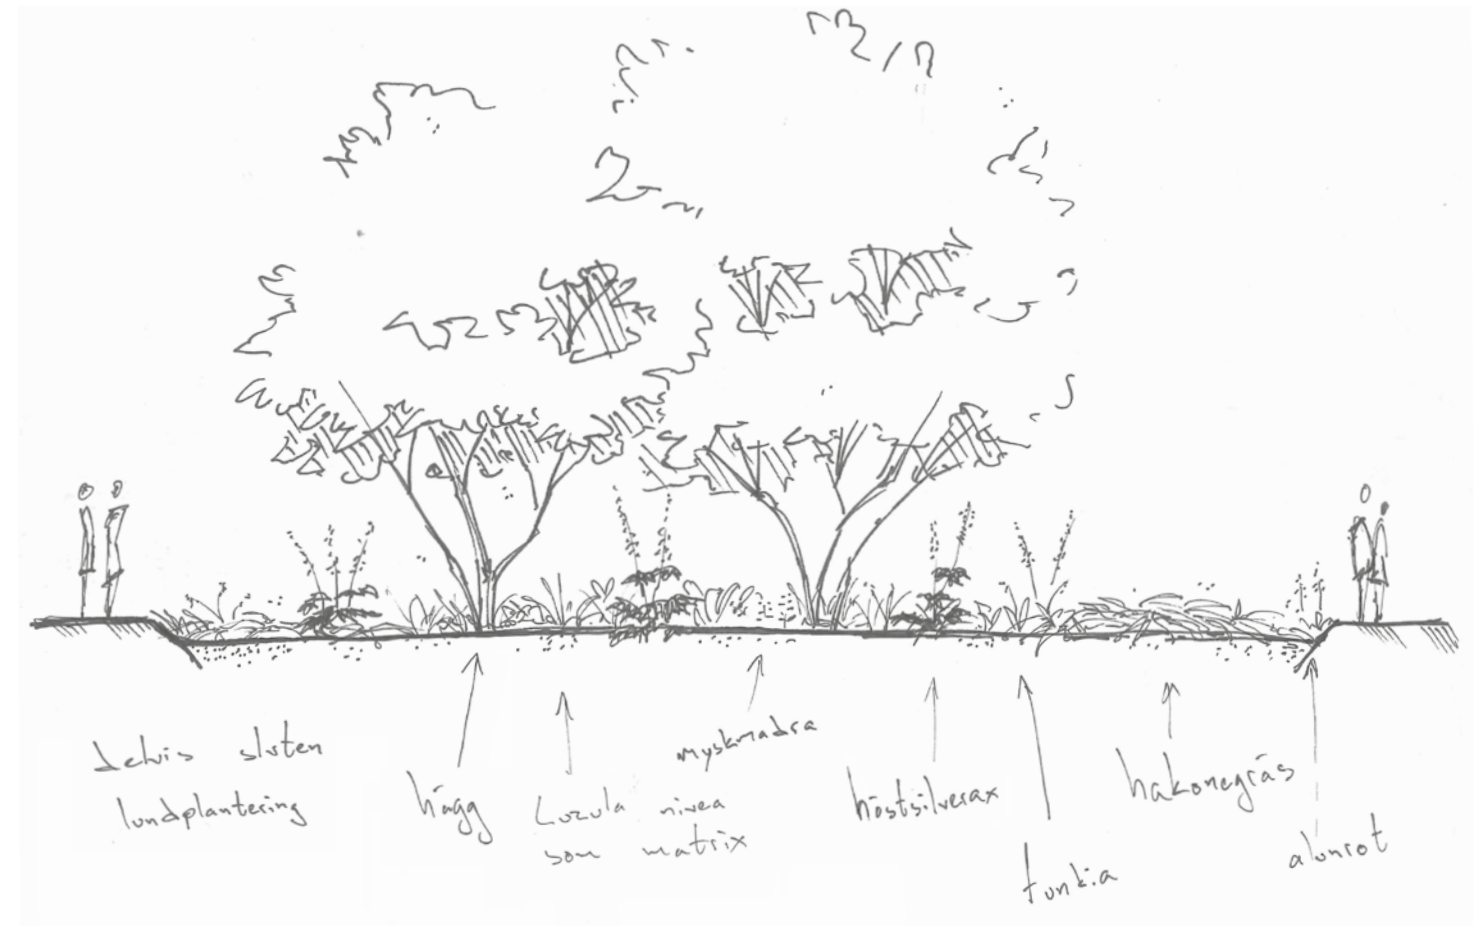 delvis sluten
lundplantering
hägg
Luzula nivea
som matrix
myskmadra
höstsilverax
funkia
hakonegräs
alunrot